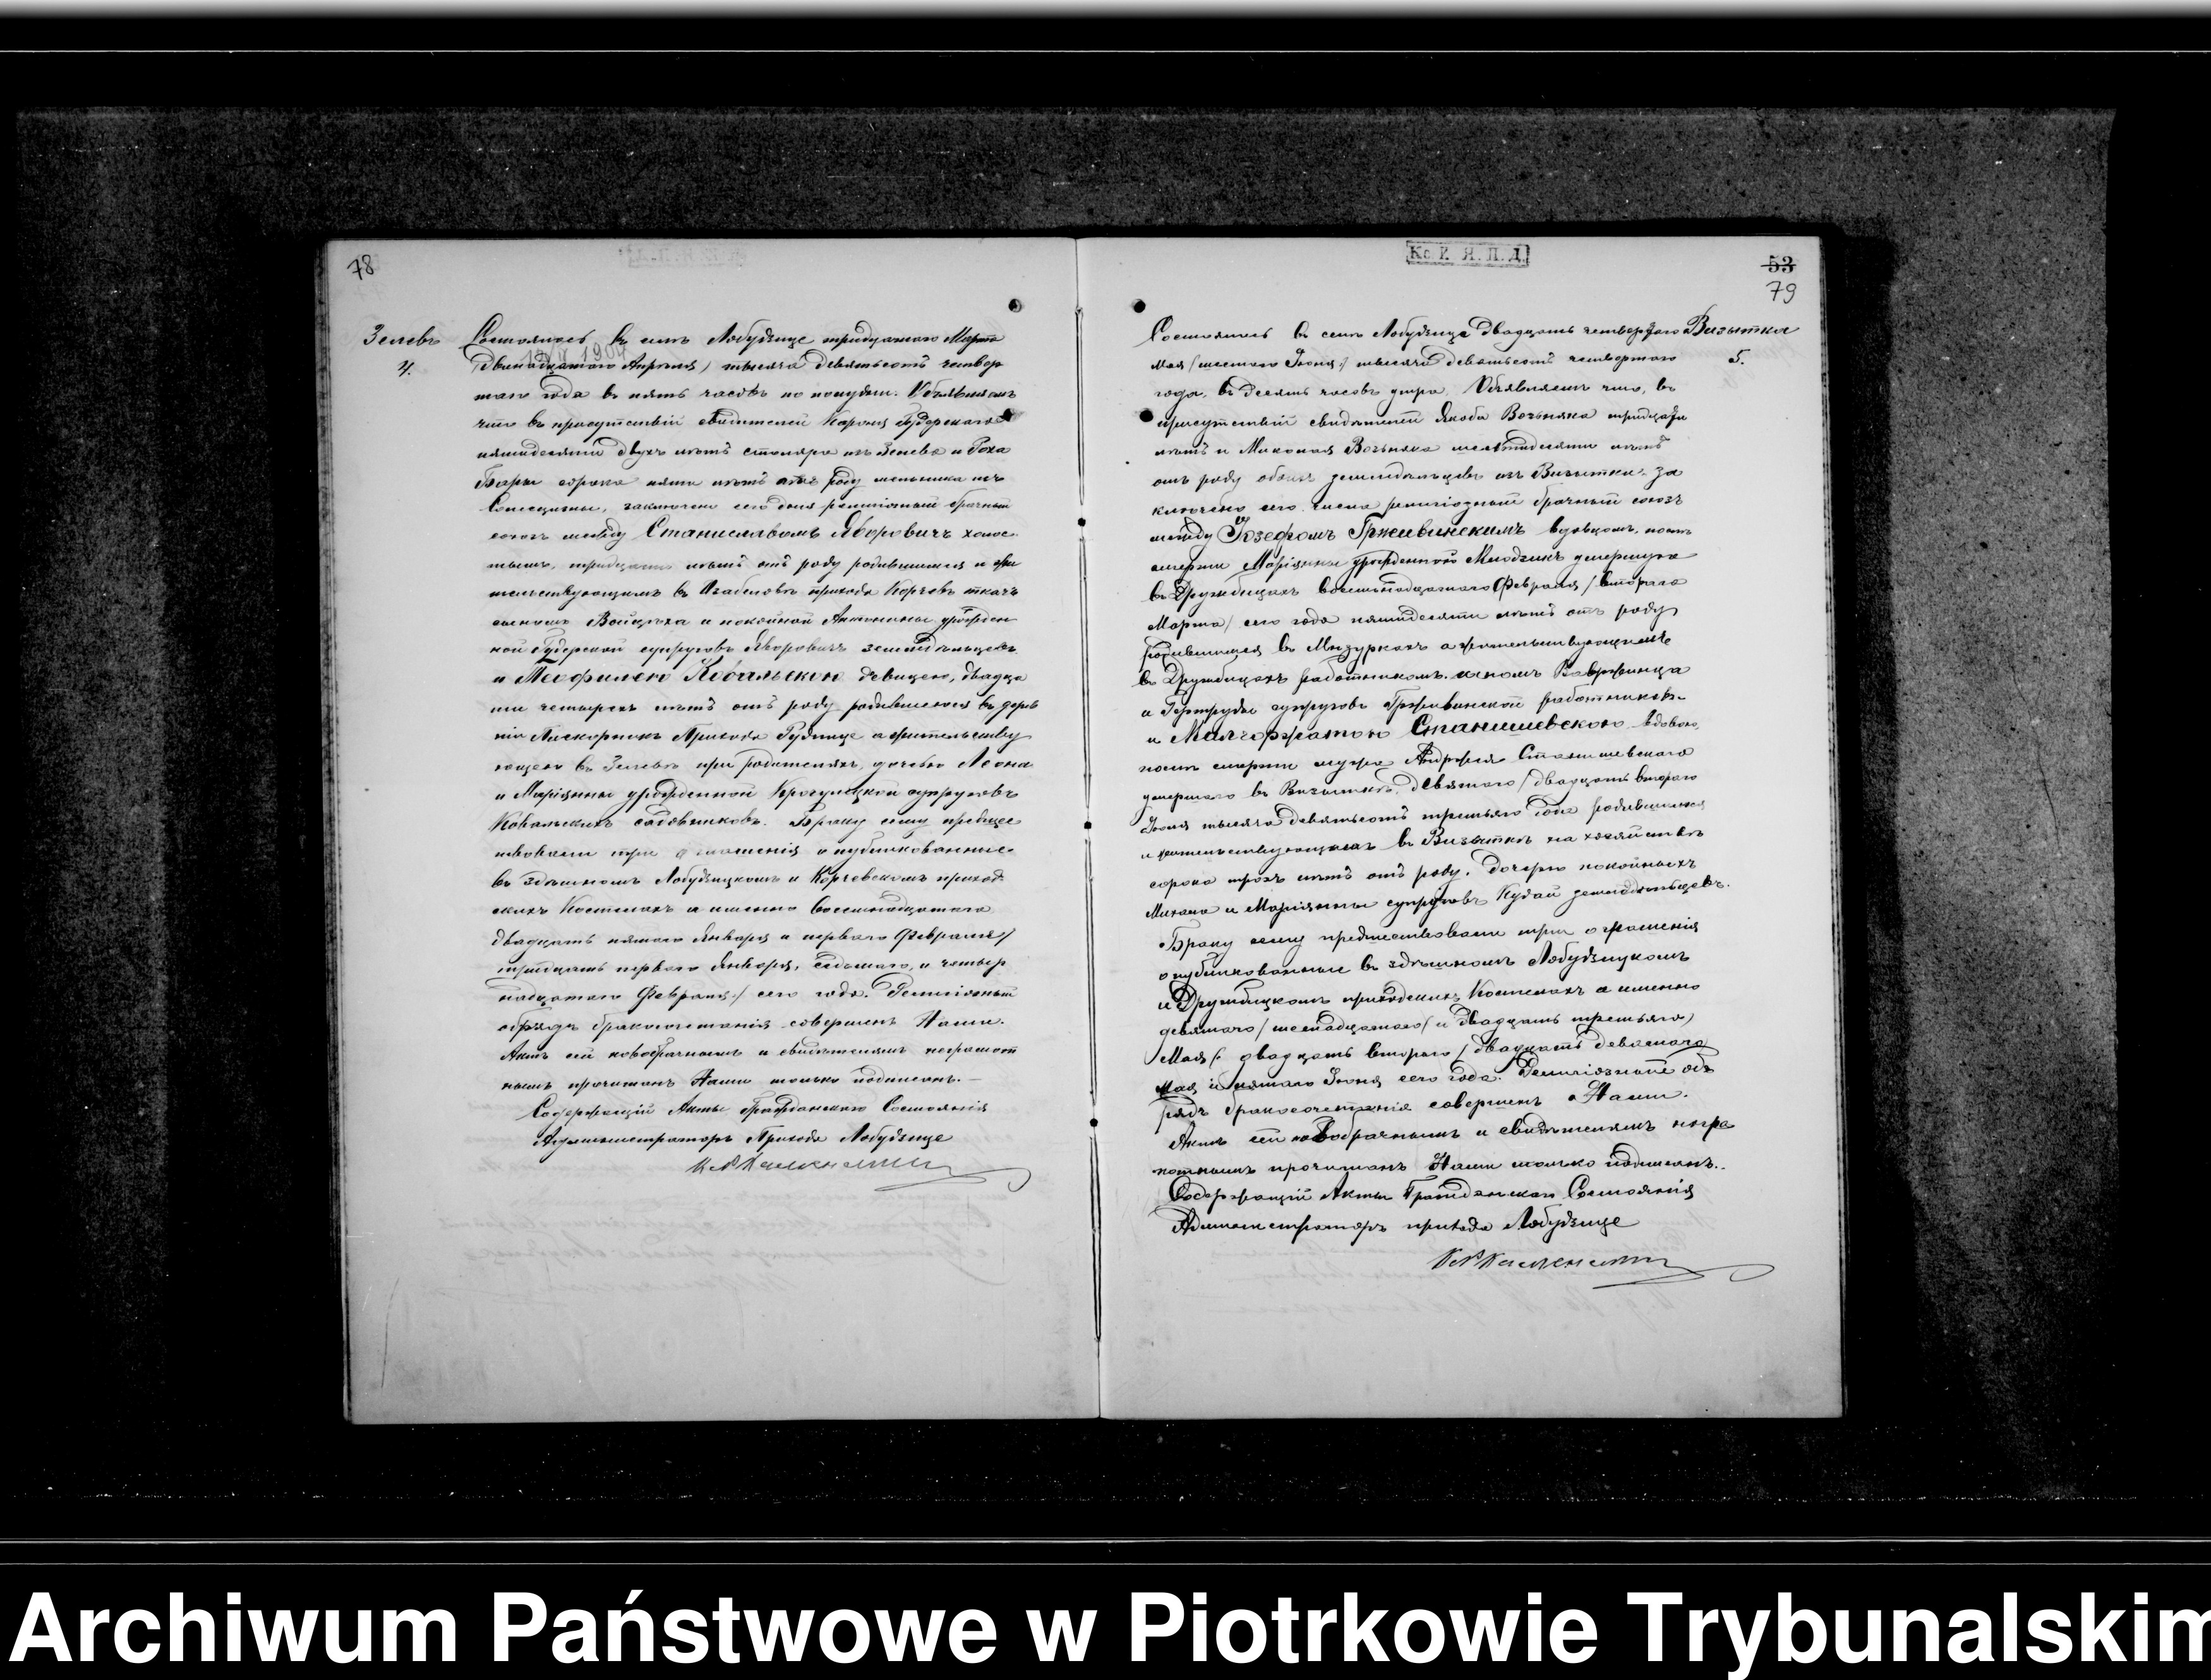 78
Зелевъ
4.
Состоялось въ селѣ Лобудзице тридцатого Марта
/двѣнадцатаго Апрѣля/ тысяча девятьсотъ четвер
12/4 1904
таго года въ пять часовъ по полудни. Объявляемъ
что въ присутствіи свидѣтелей Кароля Гудерскаго
пятидесяти двухъ лѣтъ столяра изъ Зелева и Роха
Бары сорока пяти лѣтъ отъ роду мельника изъ
заключенъ сего дня религіозный брачный
союзъ между Станиславомъ Яворовичъ холос
тымъ, тридцати лѣтъ отъ роду родившимся и жи
тельствующимъ въ прихода Корчевъ ткачъ
сыномъ Войцѣха и покойной Антонины урожден
ной Гудерской супруговъ Яворовичъ земледѣльцевъ
и Теофилею Ковальскою дѣвицею, двадца
ти четырехъ лѣтъ отъ роду родившеюся въ дерев
ни Прихода а жительству
ющею въ Зелевѣ при родителяхъ, дочерью Леона
и Маріянны урожденной супруговъ
Ковальскихъ садовниковъ. Браку сему предше
ствовали три оглашенія опубликованные
въ здѣшномъ Лобудзицкомъ и Корчевскомъ приход
скихъ Костелахъ а именно восемнадцатаго
двадцать пятаго Января и перваго Февраля/
тридцать перваго Января, седьмаго, и четыр
надцатаго Февраля:/ сего года. Религіозный
обрядъ бракосочетанія совершенъ Нами.
Актъ сей новобрачнымъ и свидѣтелямъ неграмот
нымъ прочитанъ Нами только подписанъ.—
Содержащій Акты Гражданскаго Состоянія
Администраторъ Прихода Лобудзице
Кс. Р. Я. П. Д.
53
79
Визытка
5.
Состоялось въ селѣ Лобудзице двадцать четвертаго
Мая /шестаго Іюня:/ тысяча девятьсотъ четвертаго
года, въ десять часовъ утра, Объявляемъ что, въ
присутствіи свидѣтелей Якоба Возьняка тридцати
лѣтъ и Миколая Возьняка шестидесяти лѣтъ
отъ роду обоихъ земледѣльцевъ изъ Визытки за
ключенъ сего числа религіозный брачный союзъ
между Іозефомъ Грживинскимъ вдовцомъ, послѣ
смерти Маріянны урожденной Млодзикъ умершую
въ Дружбицахъ восемнадцатаго Февраля /втораго
Марта/ сего года пятидесяти лѣтъ отъ роду
родившимся въ Мазуркахъ а жительствующимъ
въ Дружбицахъ работникомъ, сыномъ Вавржинца
и Гертруды супруговъ Грживинской работниковъ
и Малгоржатою Станишевскою вдовою,
послѣ смерти мужа Андржея Станишевскаго
умершаго въ Визыткѣ девятаго /двадцать втораго
Іюня тысяча девятьсотъ третьяго года родившаяся
и жительствующая въ Визыткѣ на хозяйствѣ
сорока трохъ лѣтъ отъ роду. Дочерью покойныхъ
Михала и Маріянны супруговъ Кудай земледѣльцевъ.
Браку сему предшествовали три оглашенія
опубликованные въ здѣшномъ Лобудзицкомъ
и Дружбицкомъ приходскихъ Костелахъ а именно
девятаго /шестнадцатаго/ и двадцать третьяго
Мая /: двадцать втораго / двадцать девятаго
Мая и пятаго Іюня сего года. Религіозный об
рядъ бракосочетанія совершенъ Нами.
Актъ сей новобрачнымъ и свидѣтелямъ негра
мотнымъ прочитанъ Нами только подписанъ.
Содержащій Акты Гражданскаго Состоянія
Администраторъ прихода Лобудзице
Archiwum Państwowe w Piotrkowie Trybunalskim